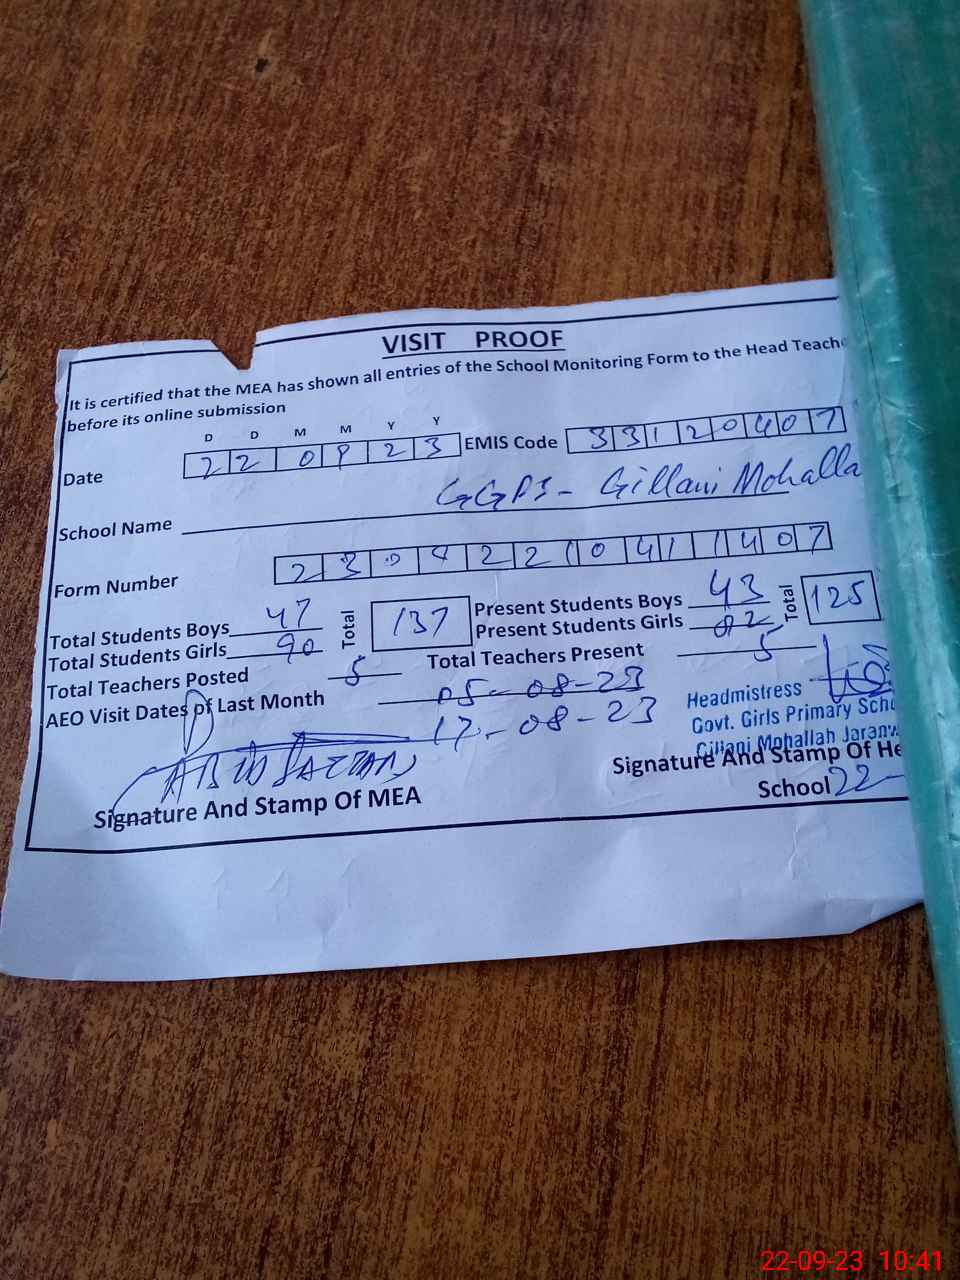 VISIT PROOF
It is certified that the MEA has shown all entries of the School Monitoring Form to the Head
before its online submission
D D M M Y Y
Date 22 09 23 EMIS Code 33120407
School Name GGPS - Gillani Mohalla
Form Number 41 1407
Total Students Boys 47 Total 137 Present Students Boys 43 Total 125
Total Students Girls 90 Present Students Girls 82
Total Teachers Posted 5 Total Teachers Present 5
AEO Visit Dates of Last Month 05-08-23
17-08-23
Headmistress
Govt. Girls Primary
Gillani Mohallah
Signature And Stamp Of MEA Signature And Stamp Of
School 22-
22-09-23 10:41